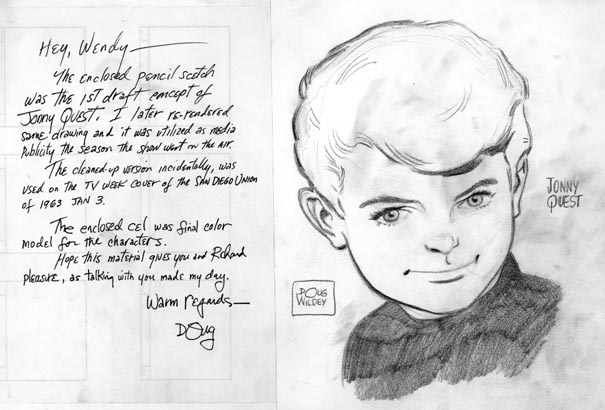 Hey, Wendy—
The enclosed pencil scetch
was the 1st draft concept of
Jonny Quest. I later re-rendered
same drawing and it was utilized as media
publicity the season the show went on the air.
The cleaned-up version incidentally, was
used on the TV Week cover of the San Diego Union
of 1963 Jan 3.
The enclosed cel was final color
model for the characters.
Hope this material gives you and Richard
pleasure, as talking with you made my day.
Warm regards—
Doug
JONNY
QUEST
DOUG
WILDEY